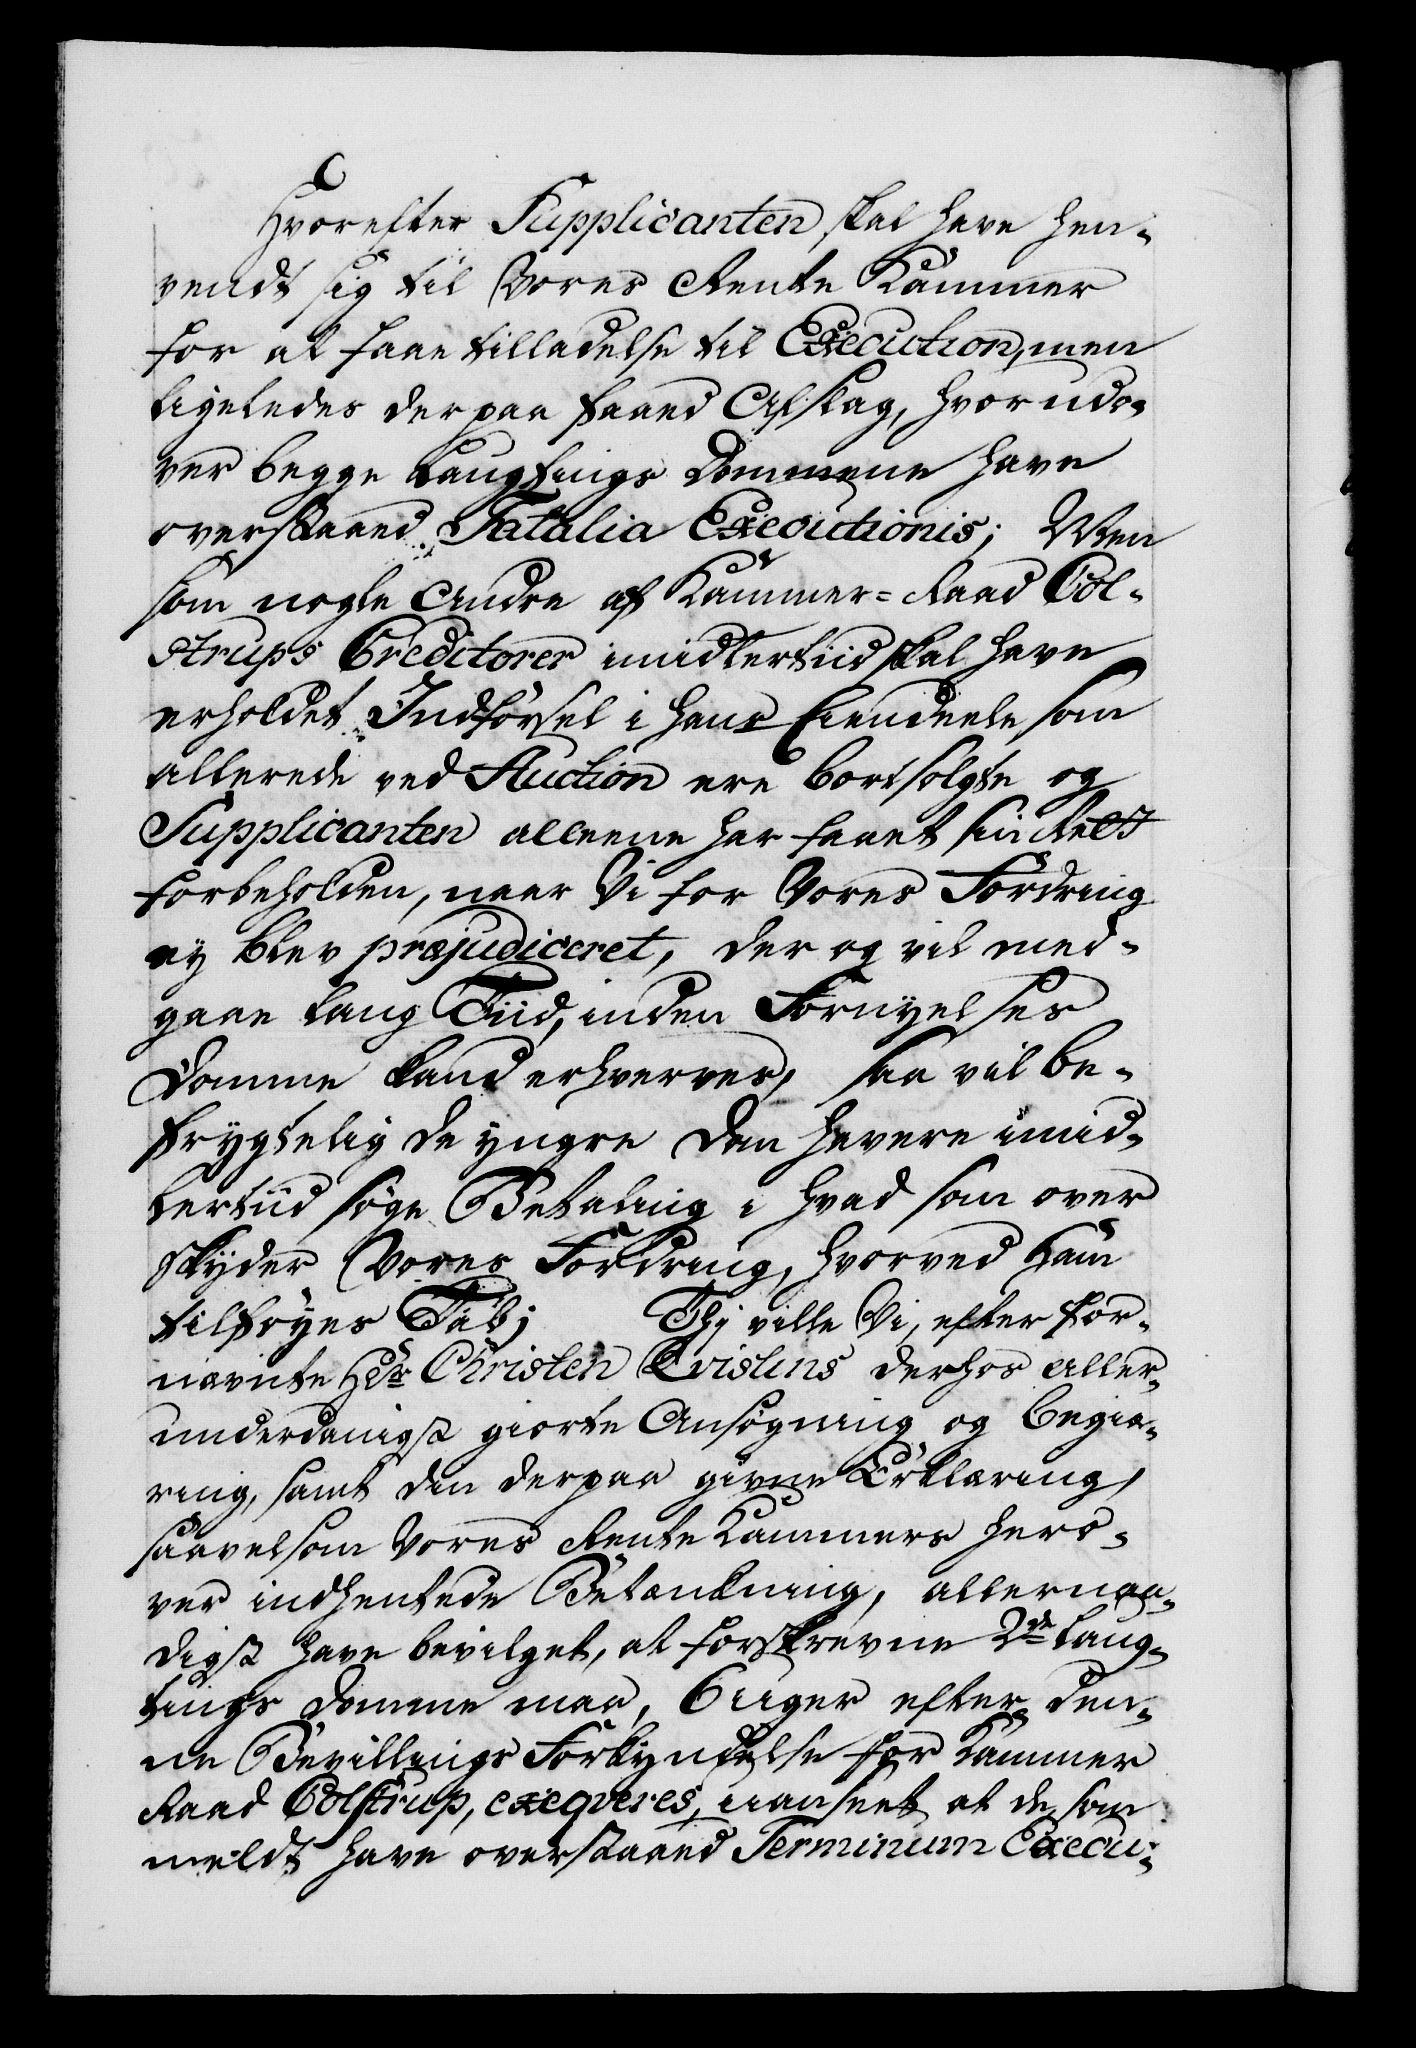 Hvorefter Supplicanten skal have hen-
vendt sig til Vores Rente Kammer
for at faae tilladelse til Execution, men
ligeledes derpaa faaed Afslag, hvorudo-
ver begge Laugtings Dommene have
overstaaed Fatalia Executionis; Men
som nogle Andre af Kammer-Raad Col-
strups Creditorer imidlertiid skal have
erholdet Indførsel i hans Eiendeele som
allerede ved Auction ere bortsolgte og
Supplicanten alleene har faaet sin Rett
forbeholden, naar Vi for Vores Fordring
ey blev præjudiceret, der og vil med-
gaae lang Tiid, inden Fornyelses
Domme kand erhverves, saa vil be-
frygtelig de yngre Domhavere imid-
lertiid søge Betaling i hvad som over
skyder Vores Fordring, hvorved ham
tilføyes Tab; Thj ville Vi, efter for-
nævnte Hr Christen Qvistens derhos aller-
underdanigst giorte Ansøgning og begiæ-
ring, samt den derpaa givne Erklæring,
saavelsom Vores Rente Kammers hero-
ver indhentede Betænkning, allernaa-
digst have bevilget, at forskrevne 2de Laug-
tings Domme maa, 6 uger efter den-
ne Bevillings Forkyndelse for Kammer
Raad Colstrup, exeqveres, uanseet at de som
meldt have overstaaed Terminum Execu-